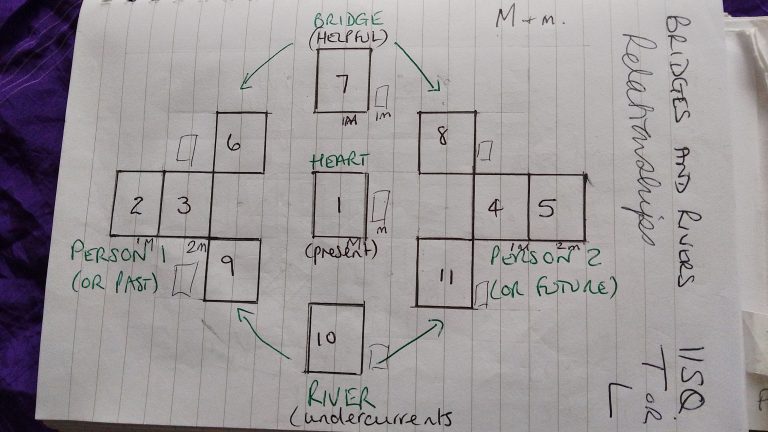 BRIDGE
(HELPFUL)
M + m.
7
1M
6
8
HEART
2 3
1
m
4 5
1M 2m
M
1M 2m
PERSON 1
(OR PAST)
(present)
PERSON 2
(OR FUTURE)
9
11
10
RIVER
(undercurrents
BRIDGES AND RIVERS
Relationships
11SQ.
T OR
L